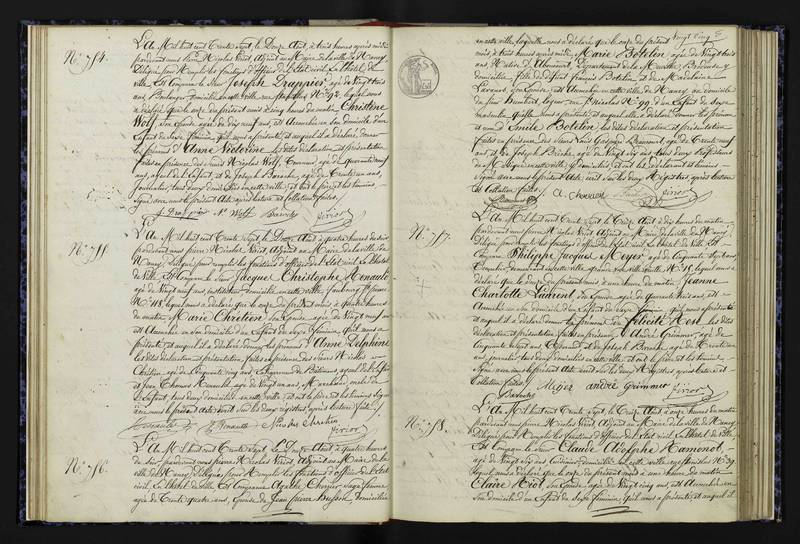 N.° 754.
L'An Mil huit cent Trente sept, le Douze Août, à trois heures après midi
pardevant nous Pierre Nicolas Virot, Adjoint au Maire de la ville de Nancy,
Délégué pour remplir les fonctions d'Officier de l'Etat civil, à l'hôtel de
ville, Est Comparu le Sieur Joseph Drappier, agé de Vingt trois
ans, Boulanger domicilié en cette ville, N.° 92, lequel nous
a déclaré que le onze du présent mois à cinq heures du matin Christine
Wolf, son Epouse agée de dix neuf ans, est Accouchée en son domicile d'un
Enfant du Sexe féminin, qu'il nous a présenté, et auquel il a déclaré donner
les prénoms d'Anne Victorine. Les dites déclaration et présentation
faites en présence des Sieurs Nicolas Wolf, agé de quarante neuf
ans, ayeul de l'Enfant, et de Joseph Baradez, agé de Trente un ans,
Journalier, tous deux domiciliés en cette ville, et ont le père et les témoins
Signé avec nous le présent Acte après lecture et Collation faites.
J. Drappier N. Wolf Virot
N.° 755
L'An Mil huit cent Trente sept, le Douze Août, à quatre heures du soir
pardevant nous Pierre Nicolas Virot, Adjoint au Maire de la ville de
Nancy, Délégué pour remplir les fonctions d'officier de l'Etat civil, à l'hôtel
de Ville, Est Comparu le Sieur Jacque Christophe Renault
agé de Vingt neuf ans, domicilié en cette ville, faubourg S.t pierre
N.° 118, lequel nous a déclaré que le onze du présent mois à quatre heures
du matin Marie Chrétien, son Epouse agée de Vingt neuf ans
est Accouchée en son domicile d'un Enfant du Sexe féminin, qu'il nous a
présenté et auquel il a déclaré donner les prénoms d'Anne Delphine
les dites déclaration et présentation faites en présence des Sieurs Nicolas
Chrétien, agé de Cinquante cinq ans, ayeul de l'Enfant
et Jean Thomas Renault, agé de Vingt un ans, Marchand
tous deux domiciliés en cette ville, et ont le père et les témoins Signé
avec nous le présent Acte écrit sur les deux registres, après lecture faite.
Renault Renault Nicolas Chretien
Virot
N.° 756.
L'An Mil huit cent Trente sept, le Douze Août à quatre heures
du soir pardevant nous Pierre Nicolas Virot Adjoint au Maire de la
ville de Nancy, Délégué pour remplir les fonctions d'officier de l'Etat
civil, à l'hôtel de Ville, Est Comparue Agathe Cherrier, Sage femme
agée de Trente quatre ans, Epouse de Jean pierre Husson, Domiciliée
Vingt Cinq
en cette ville, laquelle nous a déclaré que le onze du présent
mois, à trois heures après midi, Marie Botelin, agée de Vingt trois
ans, Native d'Amoncourt, Département de la Meurthe, Brodeuse, y
domiciliée, fille de défunt françois Botelin, et de Madelaine
Laurent, son Epouse, est Accouchée en cette ville de Nancy au domicile
du Sieur Humbert, logeur rue S.t Nicolas N.° 99, d'un Enfant du Sexe
masculin qu'elle nous a présenté et auquel elle a déclaré donner les prénom
et nom d'Emile Botelin, les dites déclaration et présentation
faites en présence des Sieurs Louis Gaspard, agé de Trente neuf
ans et de Joseph Briche, agé de Vingt six ans, tous deux Professeurs
de Musique en cette ville, et ont les déclarante et témoins
Signé avec nous le présent Acte écrit sur les deux Registres, après lecture
et Collation faites.
A. Cherrier Virot
N.° 757.
L'An Mil huit cent Trente sept, le Treize Août, à dix heures du matin
pardevant nous Pierre Nicolas Virot, Adjoint au Maire de la ville de Nancy,
Délégué pour remplir les fonctions d'officier de l'Etat civil, à l'hôtel de ville, Est
Comparu Philippe Jacques Meyer, agé de Cinquante Sept ans,
domicilié en cette ville grande rue ville vieille N.° 18, lequel nous a
déclaré que le douze du présent mois à une heure du matin Jeanne
Charlotte Laurent, son Epouse agée de quarante trois ans, est
Accouchée en son domicile d'un Enfant du Sexe féminin qu'il nous a présenté
et auquel il a déclaré donner le prénom de Félicité Rose, les dites
déclaration et présentation faites en présence d'André Grimmer, agé de
Cinquante sept ans, et de Joseph Baradez, agé de Trente un
ans, journalier, tous deux domiciliés en cette ville, et ont le père et les témoins
Signé avec nous le présent Acte écrit sur les deux Registres après lecture et
Collation faites.
Meyer andré Grimmer
Virot
N.° 758.
L'An Mil huit cent Trente sept, le Treize Août à onze heures du matin
pardevant nous Pierre Nicolas Virot, Adjoint au Maire de la ville de Nancy,
Délégué pour remplir les fonctions d'officier de l'Etat civil, à l'hôtel de Ville,
Est Comparu le Sieur Claude Adolphe Hamonot,
agé de Vingt six ans, domicilié en cette ville, rue S.t Nicolas N.° 39,
lequel nous a déclaré que le onze du présent mois à onze heures du matin
Claire Riot, son Epouse, agée de Vingt cinq ans, est Accouchée en
son domicile d'un Enfant du Sexe féminin, qu'il nous a présenté, et auquel il